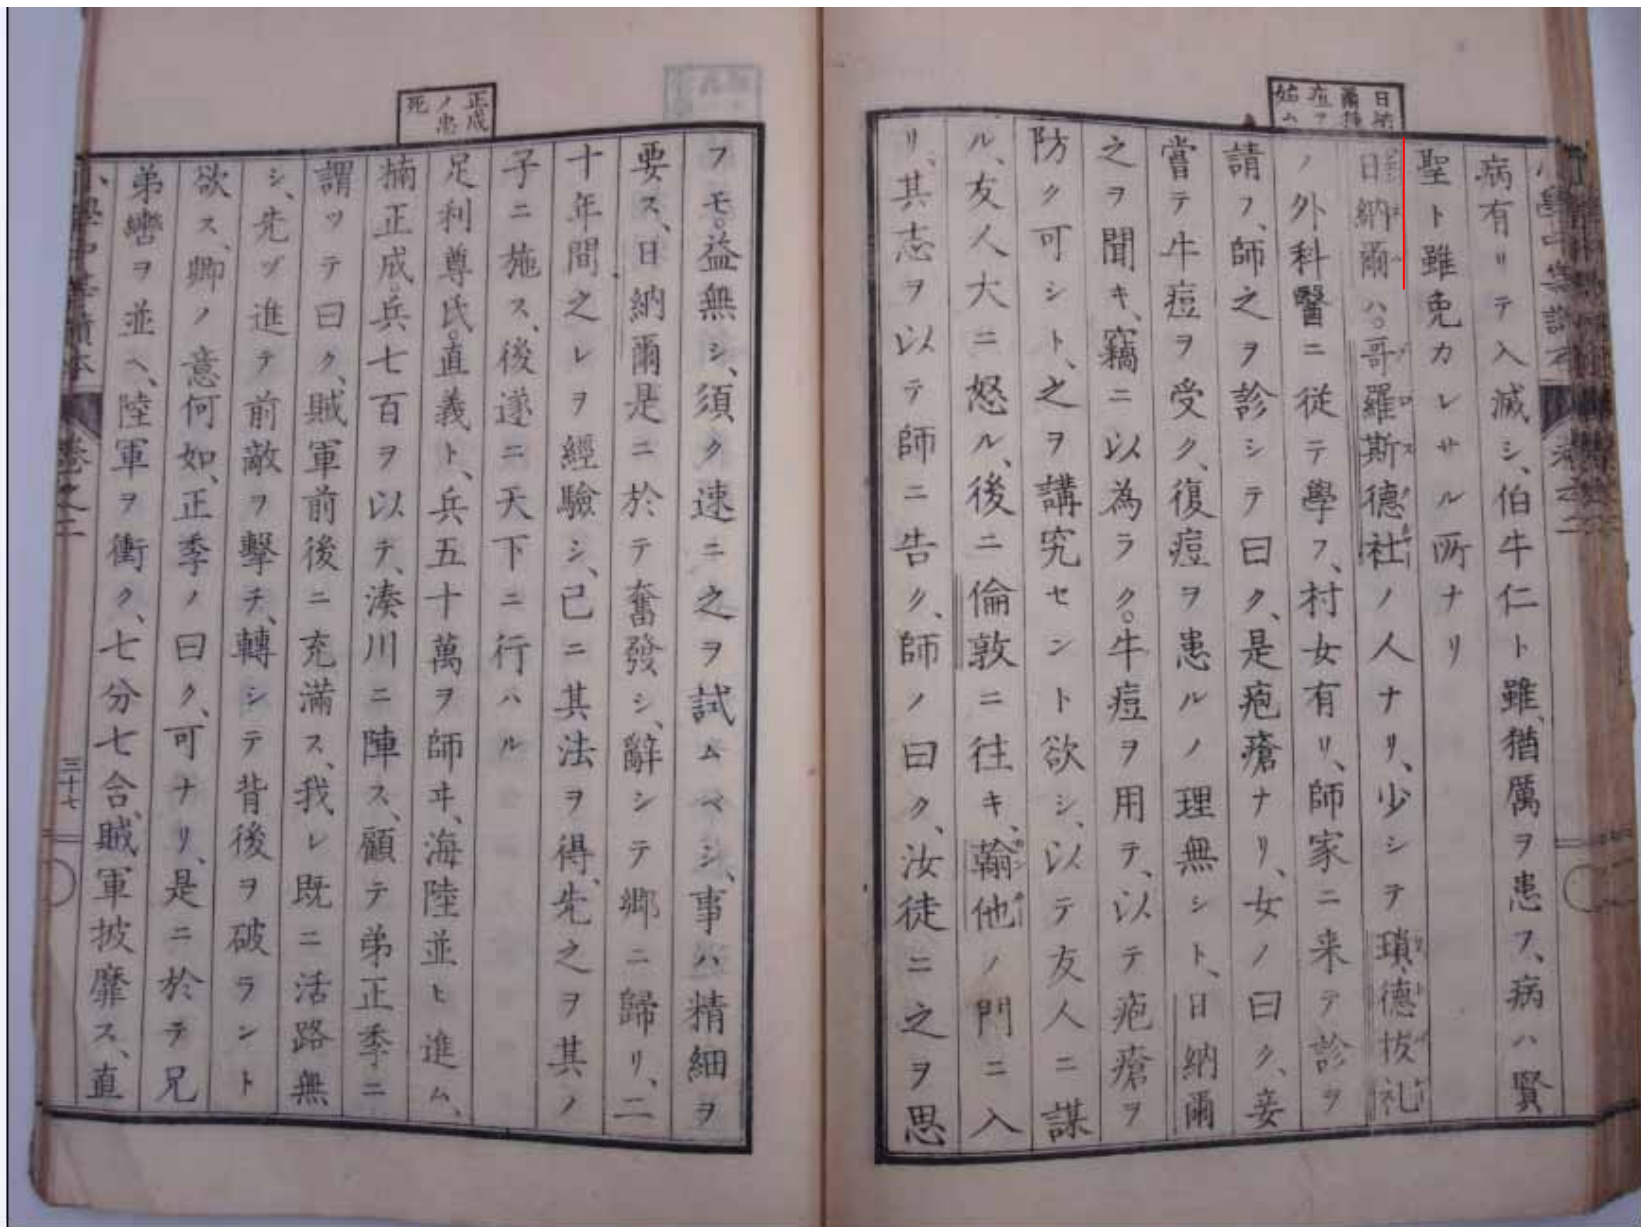 日納
爾種
痘ヲ
始ム
病有リテ入滅シ、伯牛仁ト雖、猶厲ヲ患フ、病ハ賢
聖ト雖免カレサル所ナリ
日納爾ハ。哥羅斯德社ノ人ナリ、少シテ瑣德抜礼
ノ外科醫ニ従テ學フ、村女有リ、師家ニ来テ診ヲ
請フ、師之ヲ診シテ曰ク、是疱瘡ナリ、女ノ曰ク、妾
嘗テ牛痘ヲ受ク、復痘ヲ患ルノ理無シト、日納爾
之ヲ聞キ、竊ニ以為ラク。牛痘ヲ用テ、以テ疱瘡ヲ
防ク可シト、之ヲ講究セント欲シ、以テ友人ニ謀
ル、友人大ニ怒ル、後ニ倫敦ニ往キ、翰他ノ門ニ入
リ、其志ヲ以テ師ニ告ク、師ノ曰ク、汝徒ニ之ヲ思
正成
ノ忠
死
フモ。益無シ、須ク速ニ之ヲ試ムベシ、事ハ精細ヲ
要ス、日納爾是ニ於テ奮發シ、辭シテ郷ニ歸リ、二
十年間之レヲ經驗シ、已ニ其法ヲ得、先之ヲ其ノ
子ニ施ス、後遂ニ天下ニ行ハル
足利尊氏。直義ト、兵五十萬ヲ師ヰ、海陸並ヒ進ム、
楠正成。兵七百ヲ以テ、湊川ニ陣ス、顧テ弟正季ニ
謂ツテ曰ク、賊軍前後ニ充滿ス、我レ既ニ活路無
シ、先ヅ進テ前敵ヲ擊チ、轉シテ背後ヲ破ラント
欲ス、卿ノ意何如、正季ノ曰ク、可ナリ、是ニ於テ兄
弟轡ヲ並ヘ、陸軍ヲ衝ク、七分七合、賊軍披靡ス、直
卷之二
三十七